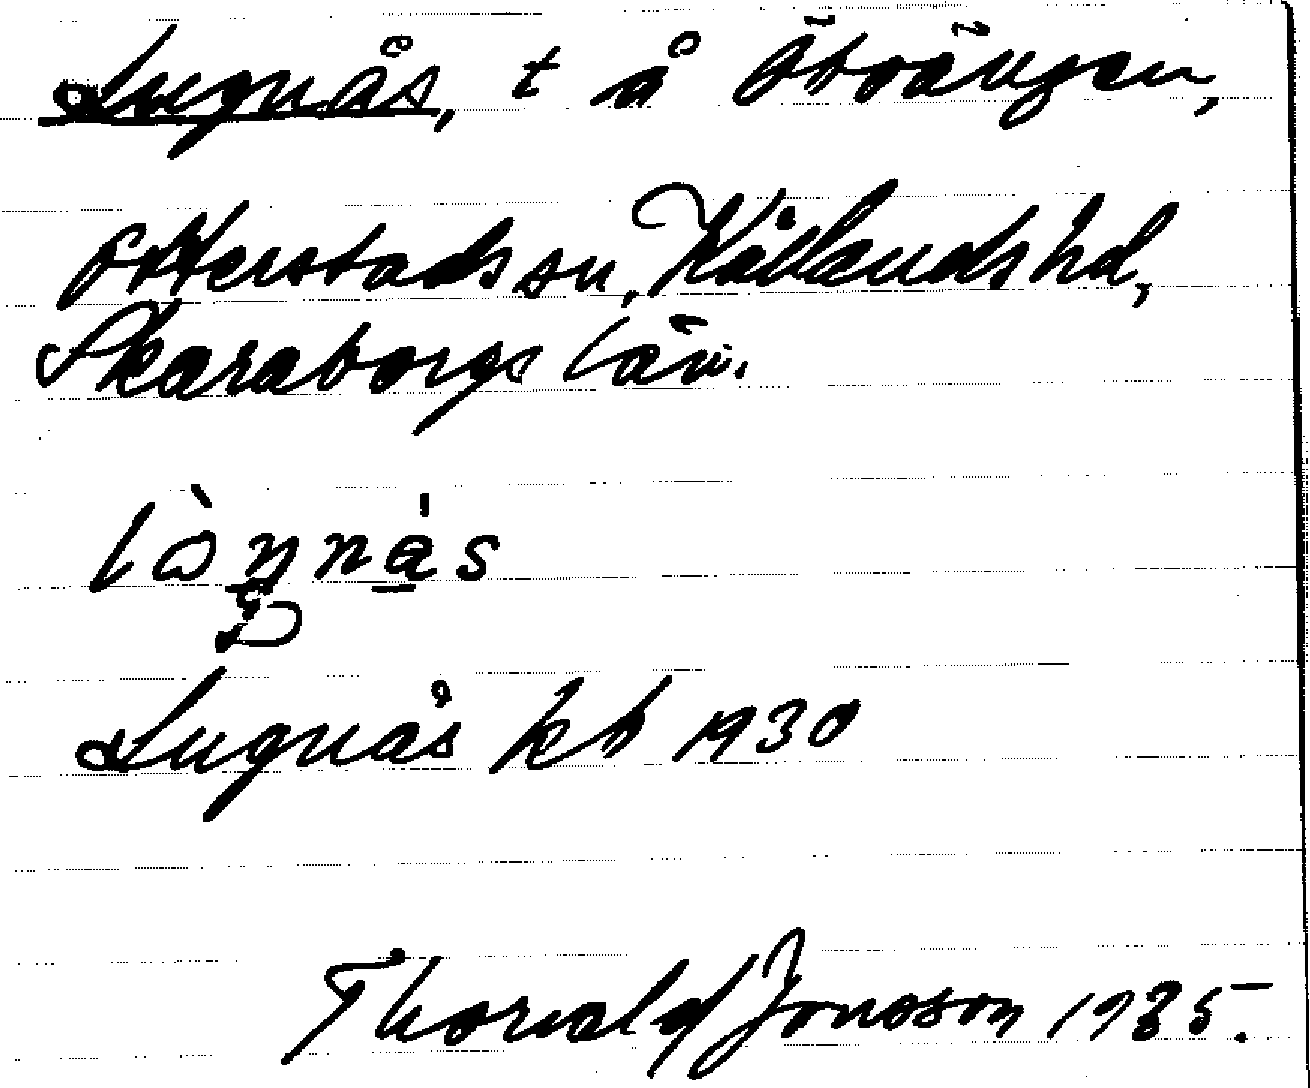 Lugnås, t å Östrängen,
Otterstads sn, Kållands hd,
Skaraborgs län.
lònnás
Lugnås kb 1930
Thorvald Jonsson 1935.